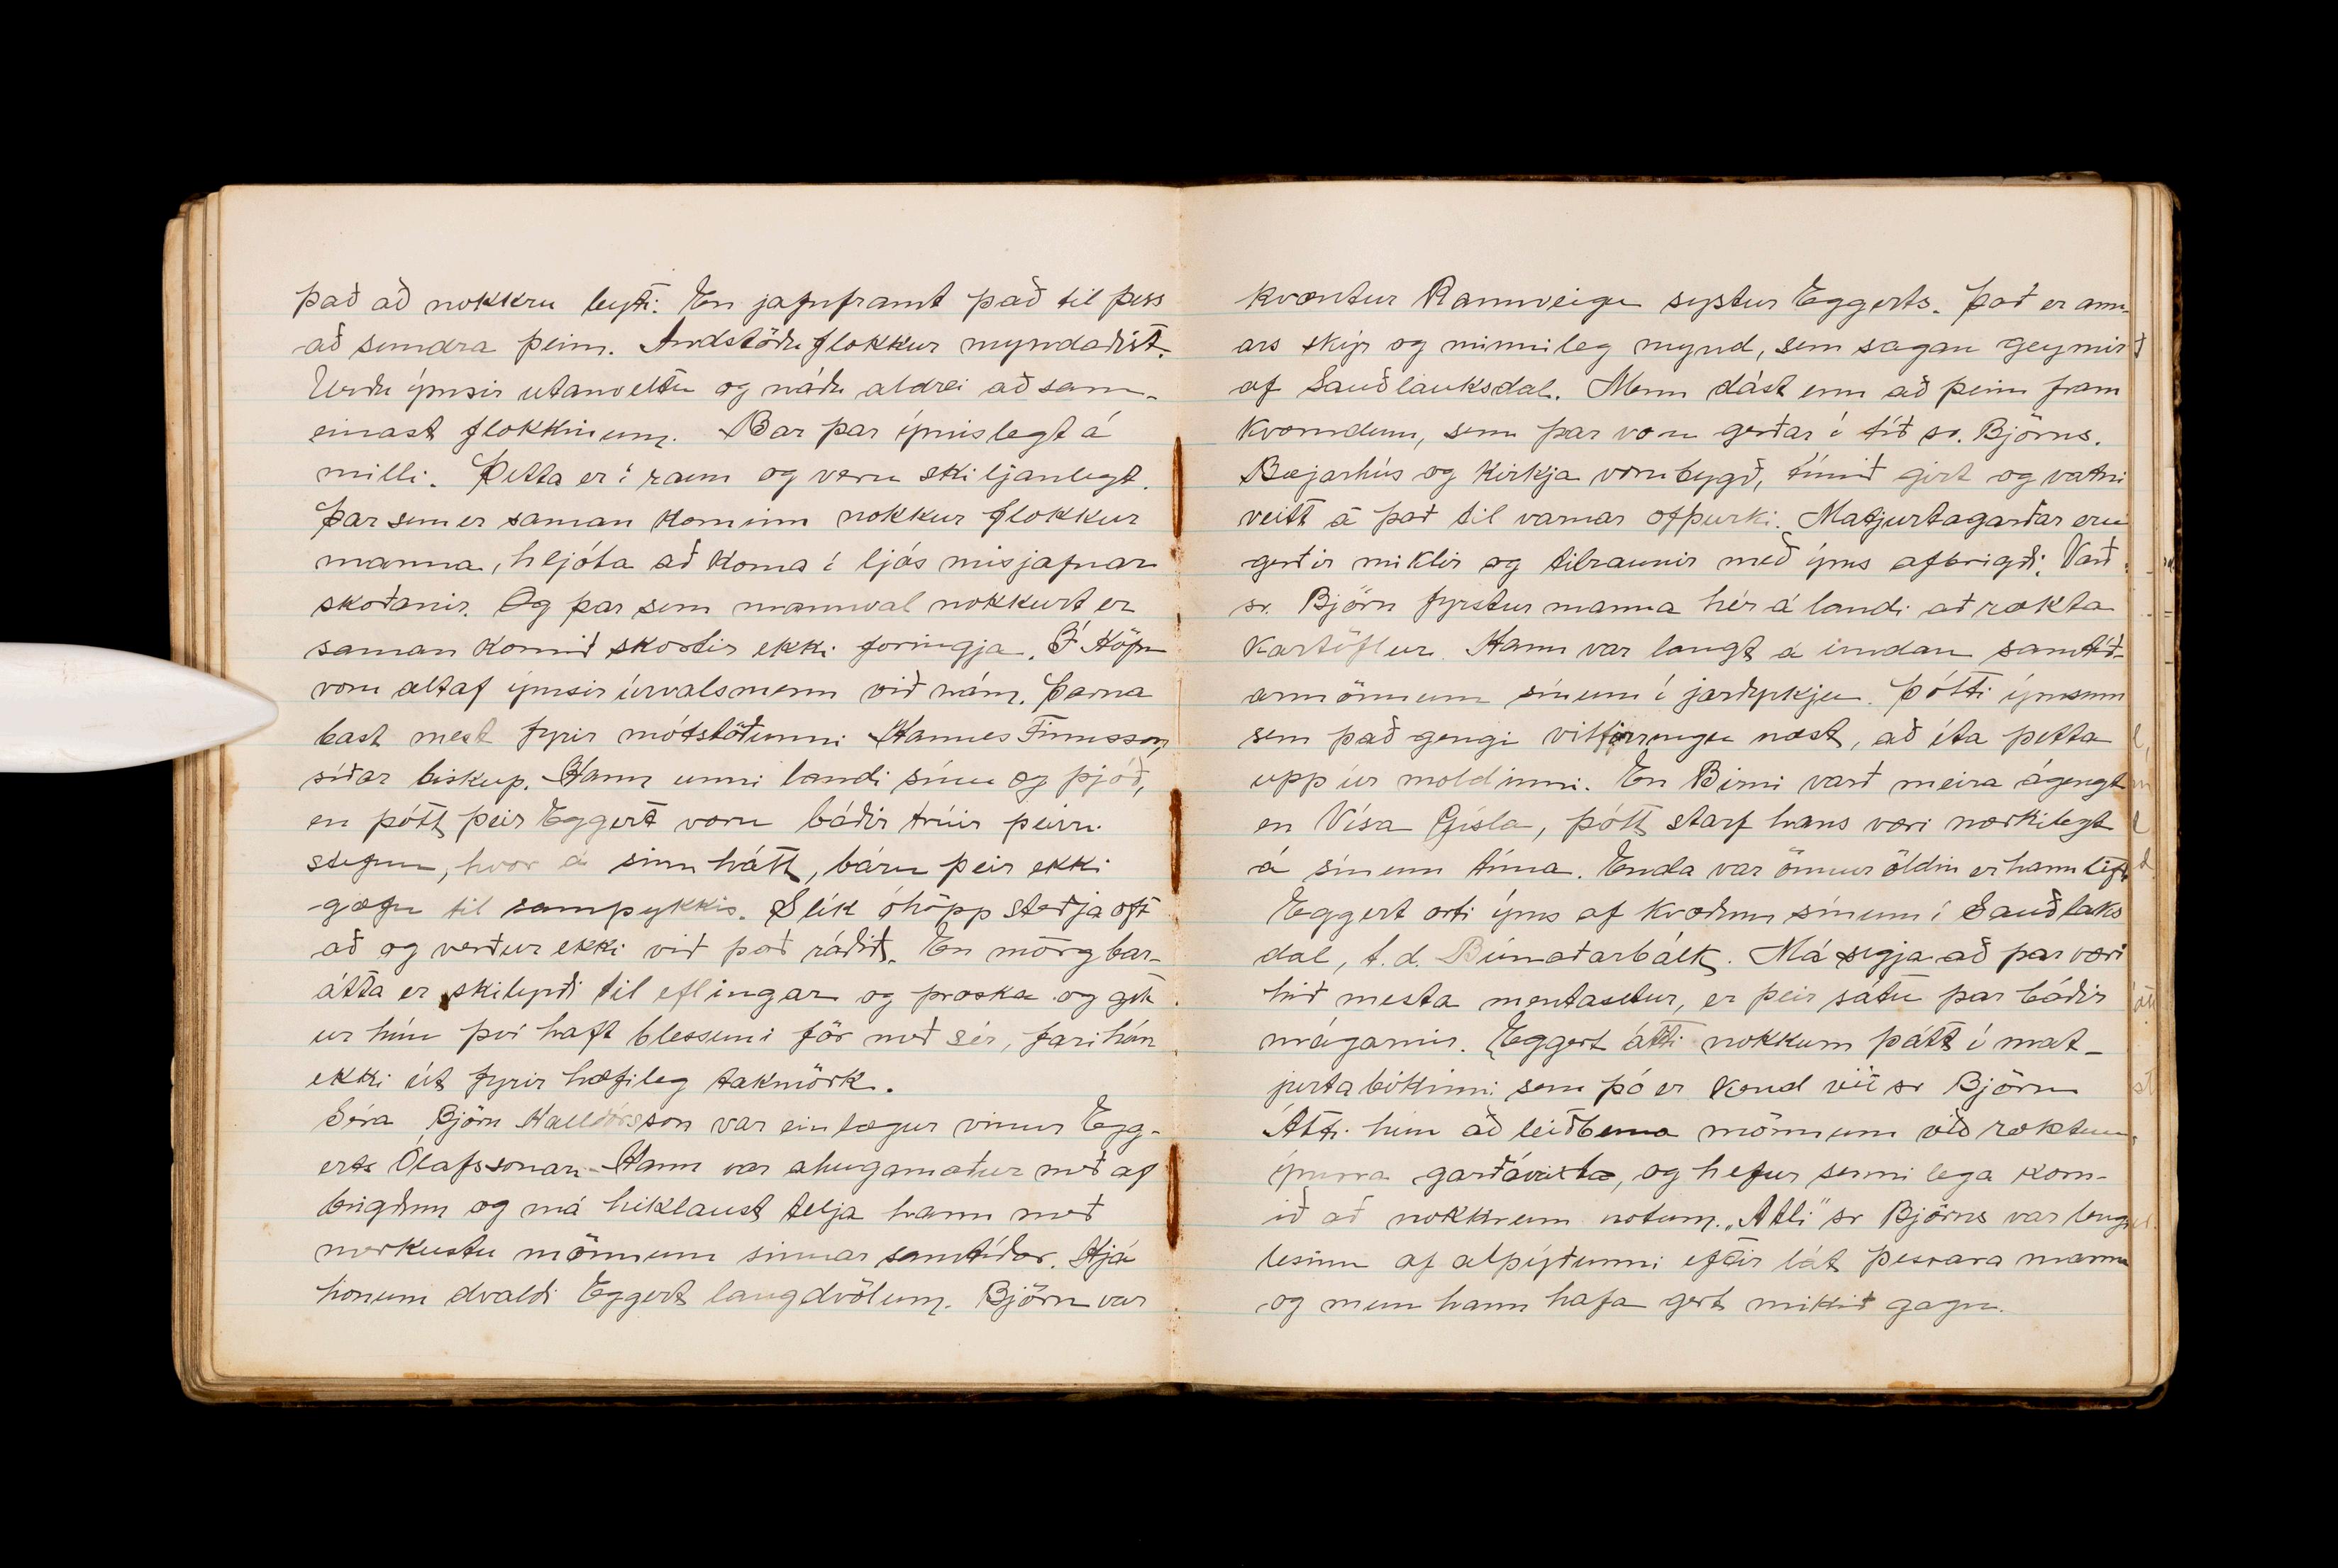 það að nokkru leyti. En jafnframt það til þess
að sundra þeim. Andstöðuflokkur myndaðist.
Urðu ýmsir utanveltu og náðu aldrei að sam-
einast flokknum. Bar þar ýmislegt á
milli. Þetta er í raun og veru skiljanlegt.
Þar sem er saman kominn nokkur flokkur
manna, hljóta að koma í ljós misjafnar
skoðanir. Og þar sem mannval nokkurt er
saman komið skortir ekki foringja. Í Höfn
voru altaf ýmsir úrvalsmenn við nám. Þarna
bast mest fyrir mótstöðunni Hannes Finnsson,
síðar biskup. Hann unni landi sínu og þjóð,
en þótt þeir Eggert voru báðir trúir þeirri
stefnu, hvor á sinn hátt, báru þeir ekki
gæfu til samþykkis. Slík óhöpp steðja oft
að og verður ekki við það ráðið. En mörg bar-
átta er skilyrði til eflingar og þroska og get-
ur hún því haft blessun í för með sér, fari hún
ekki út fyrir hæfileg takmörk.
Séra Björn Halldórsson var einlægur vinur Egg-
erts Ólafssonar. Hann var áhugamaður með af
brigðum og má hiklaust telja hann með
merkustu mönnum sinnar samtíðar. Hjá
honum dvaldi Eggert langdvölum. Björn var
kvæntur Rannveigu systur Eggerts. Það er ann-
ars skýr og minnileg mynd, sem sagan geymir
af Sauðlauksdal. Menn dást enn að þeim fram
kvæmdum, sem þar voru gerðar í tíð sr. Björns.
Bæjarhús og kirkja voru bygð, túnið girt og vatni
veitt á það til varnar ofþurki. Matjurtagarðar eru
gerðir miklir og tilraunir með ýms afbrigði. Varð
sr. Björn fyrstur manna hér á landi að rækta
kartöflur. Hann var langt á undan samtíð-
armönnum sínum í jarðyrkju. Þótti ýmsum
sem það gengi vitfirringu næst, að éta þetta
upp úr moldinni. En Birni varð meira ágengt
en Vísa Gísla, þótt starf hans væri merkilegt
á sínum tíma. Enda var önnur öldin er hann lifði
Eggert orti ýms af kvæðum sínum í Sauðlaks
dal, t.d. Búnaðarbálk. Má segja að þar væri
hið mesta mentasetur, er þeir sátu þar báðir
mágarnir. Eggert átti nokkurn þátt í mat-
jurtabókinni sem þó er kend við sr Björn
Átti hún að leiðbeina mönnum við ræktun
ýmsra garðávaxta, og hefur sennilega kom-
ið að nokkrum notum. „Atli" sr Björns var lengi
lesinn af alþýðunni eftir lát þessara manna
og mun hann hafa gert mikið gagn.